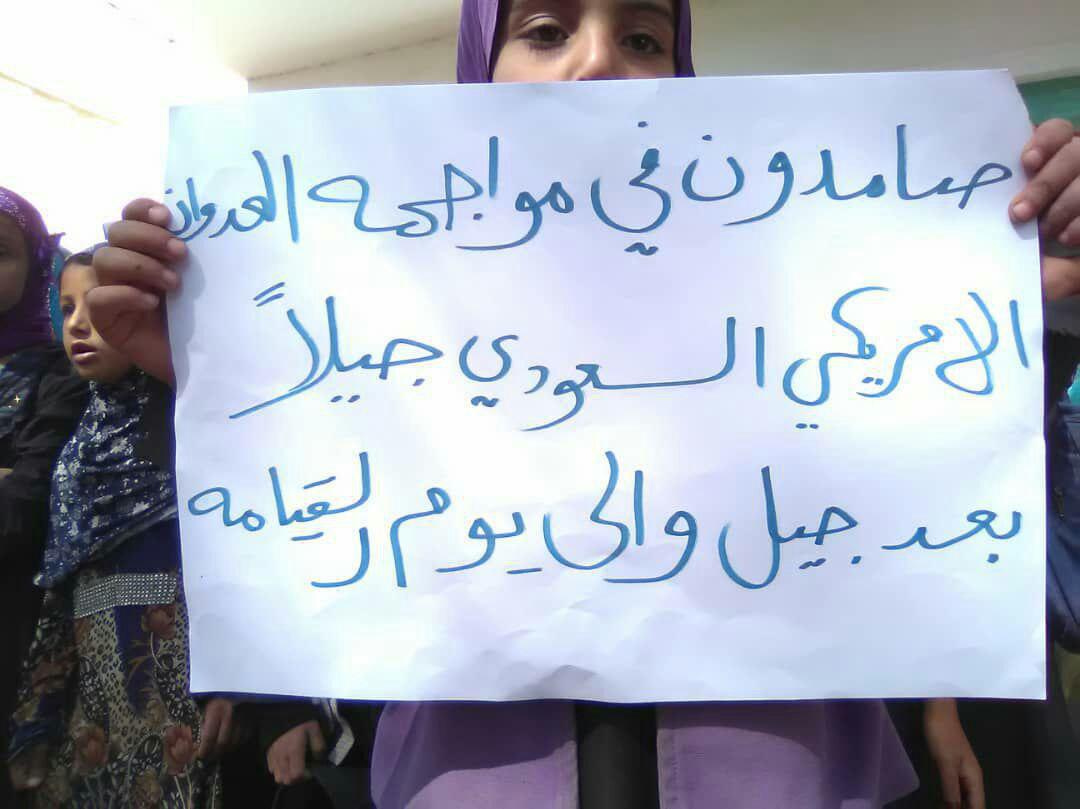 صامدون في مواجهه العدوان
الامريكي السعودي جيلاً
بعد جيل والى يوم القيامه